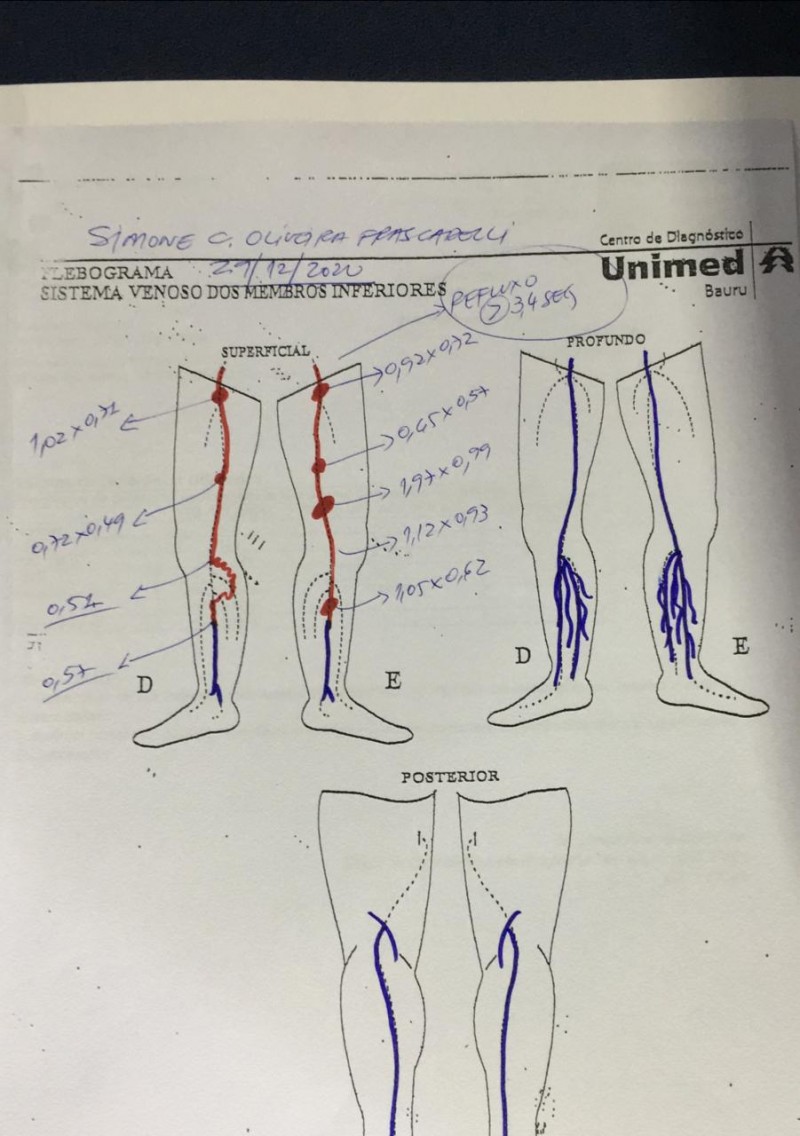 SIMONE C. OLIVEIRA FRASCARELLI
Centro de Diagnóstico
Unimed
Bauru
FLEBOGRAMA 29/12/2020
SISTEMA VENOSO DOS MEMBROS INFERIORES
REFLUXO
> 3,4 SEG
SUPERFICIAL
PROFUNDO
0,92x0,72
1,02x0,71
0,45x0,57
1,97x0,99
0,72x0,49
1,12x0,93
1,05x0,62
0,57
D
E
D
E
POSTERIOR